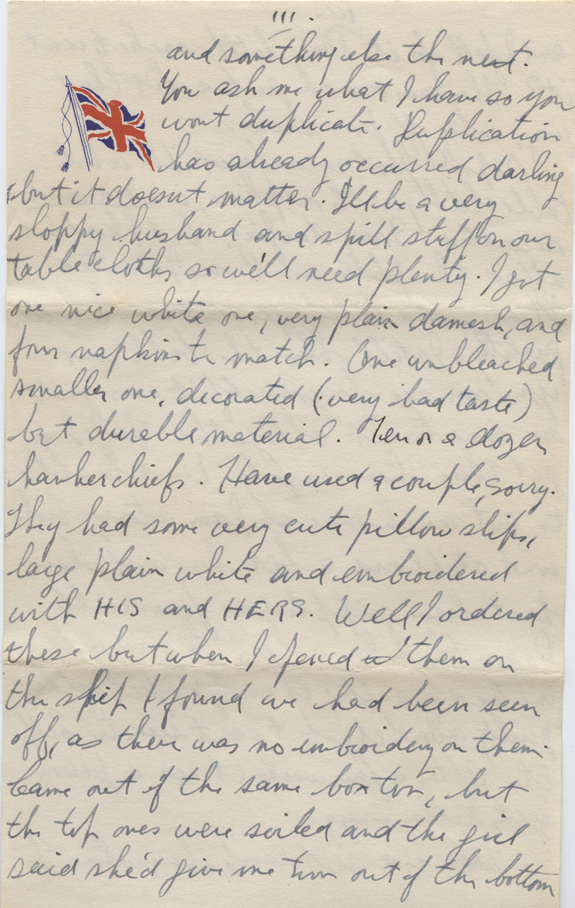 !!!.
and something else the next.
You ask me what I have so you
wont duplicate. Duplication
has already occurred darling
but it doesnt matter. I'll be a very
sloppy husband and spill stuff on our
table cloths so we'll need plenty. I got
one nice white one, very plain damesk, and
four napkins to match. One unbleached
smaller one, decorated (very bad taste)
but durable material. Ten or a dozen
hankerchiefs. Have used a couple, sorry.
They had some very cute pillow slips,
large plain white and embroidered
with HIS and HERS. Well I ordered
these but when I opened them on
the ship I found we had been seen
off, as there was no embroidery on them.
Came out of the same box too, but
the top ones were soiled and the girl
said she'd give me two out of the bottom